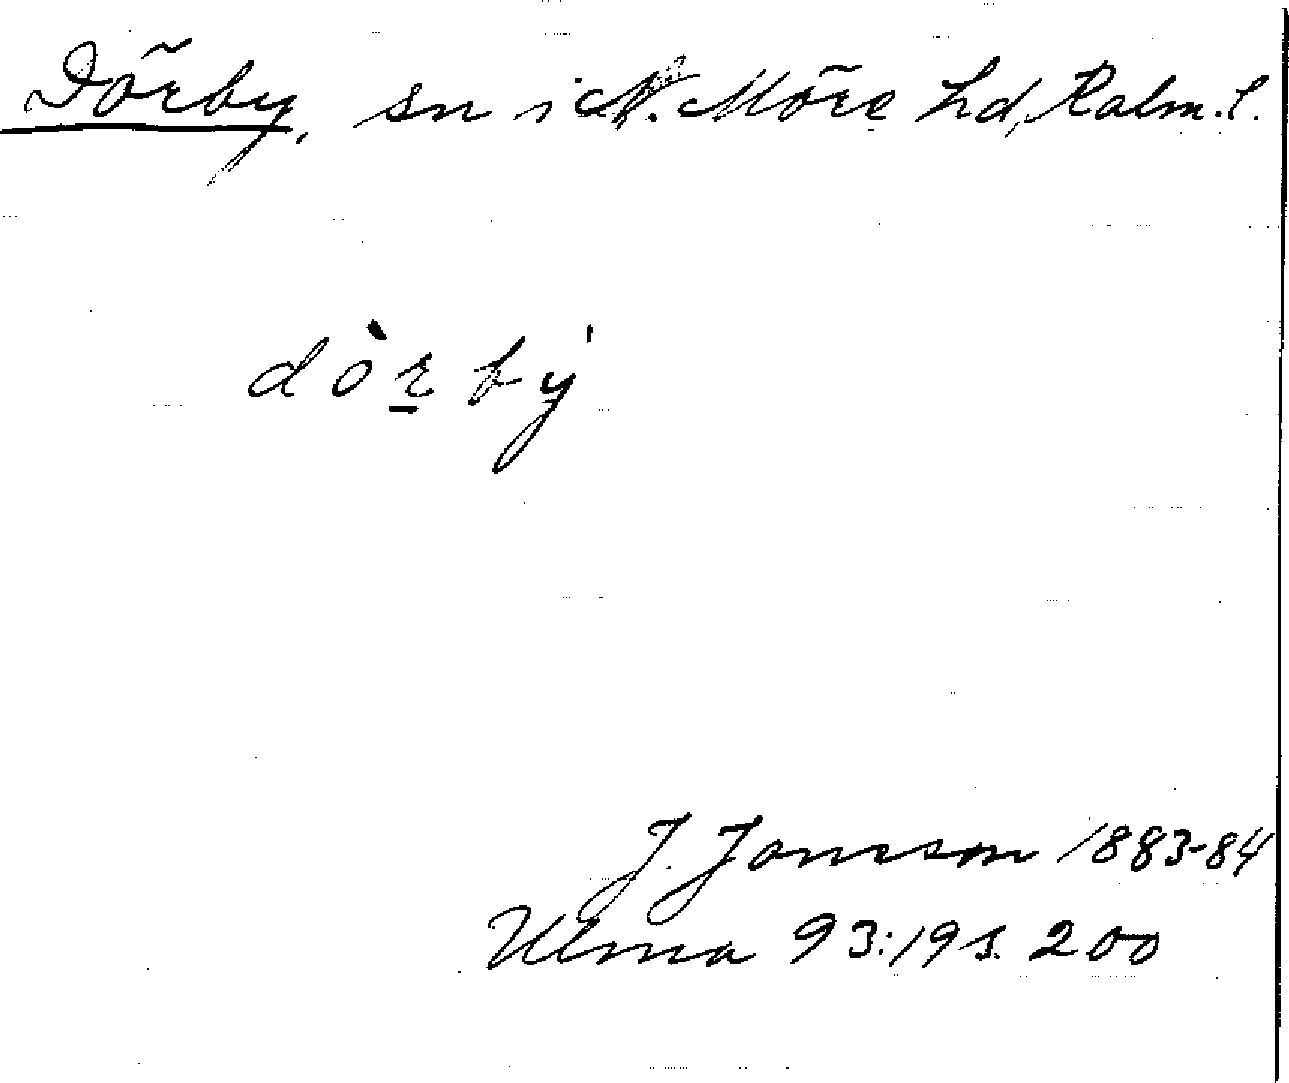 Dörby, sn i N. Möre hd, Kalm. l.
dò̱rbý
J. Jonsson 1883-84
Ulma 93:19 s. 200